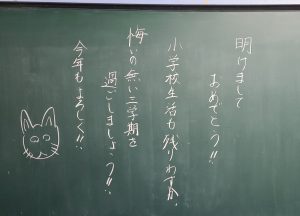 明けまして
おめでとう!!
小学校生活も残りわずか。
悔いの無い三学期を
過ごしましょう!!
今年もよろしく!!